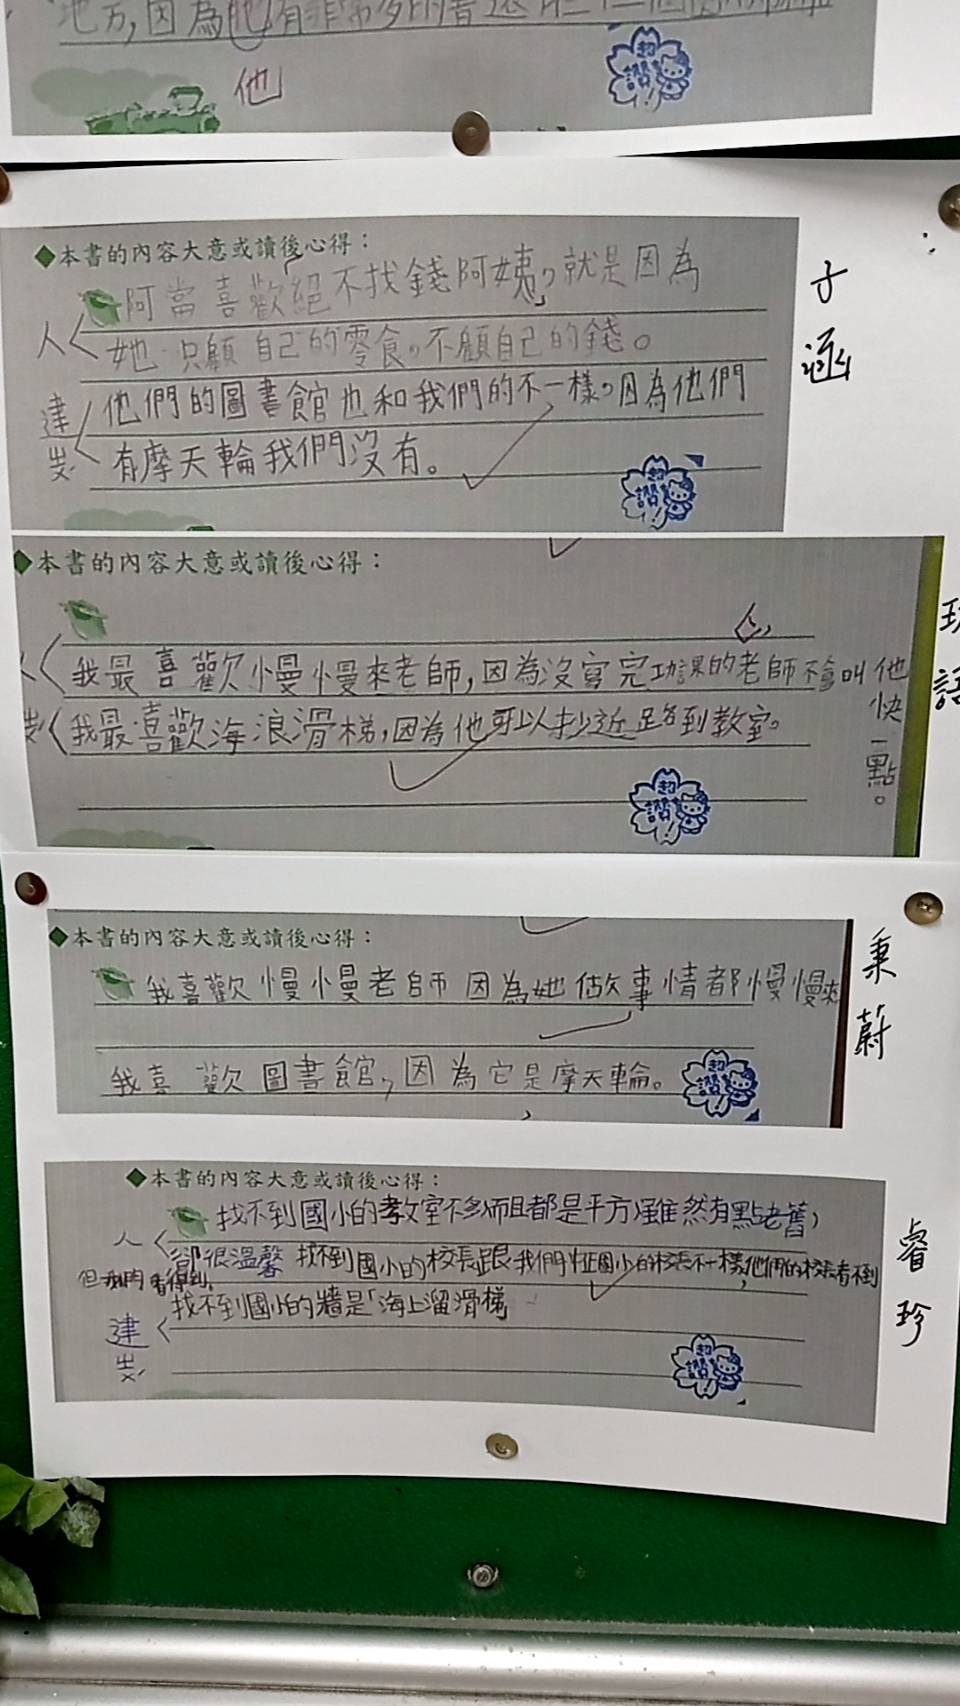 地方,因為他有非常多的書還
他
超讚!
◆本書的內容大意或讀後心得：
阿當喜歡絕不找錢阿姨,就是因為
人
她只顧自己的零食,不顧自己的錢。
他們的圖書館也和我們的不一樣,因為他們
建
有摩天輪我們沒有。
超讚!
子涵
◆本書的內容大意或讀後心得：
人
我最喜歡慢慢來老師,因為沒寫完功課的老師不會叫他快一點。
我最喜歡海浪滑梯,因為他可以抄近路到教室。
超讚!
語
◆本書的內容大意或讀後心得：
我喜歡慢慢老師因為她做事情都慢慢來
我喜歡圖書館,因為它是摩天輪。
超讚!
秉蔚
◆本書的內容大意或讀後心得：
找不到國小的教室不多而且都是平方,雖然有點老舊,
人
卻很溫馨 找不到國小的校長跟我們中正國小的校長不一樣,他們的校長看不到
但我們看得到,
找不到國小的牆是「海上溜滑梯」
建
超讚!
睿珍